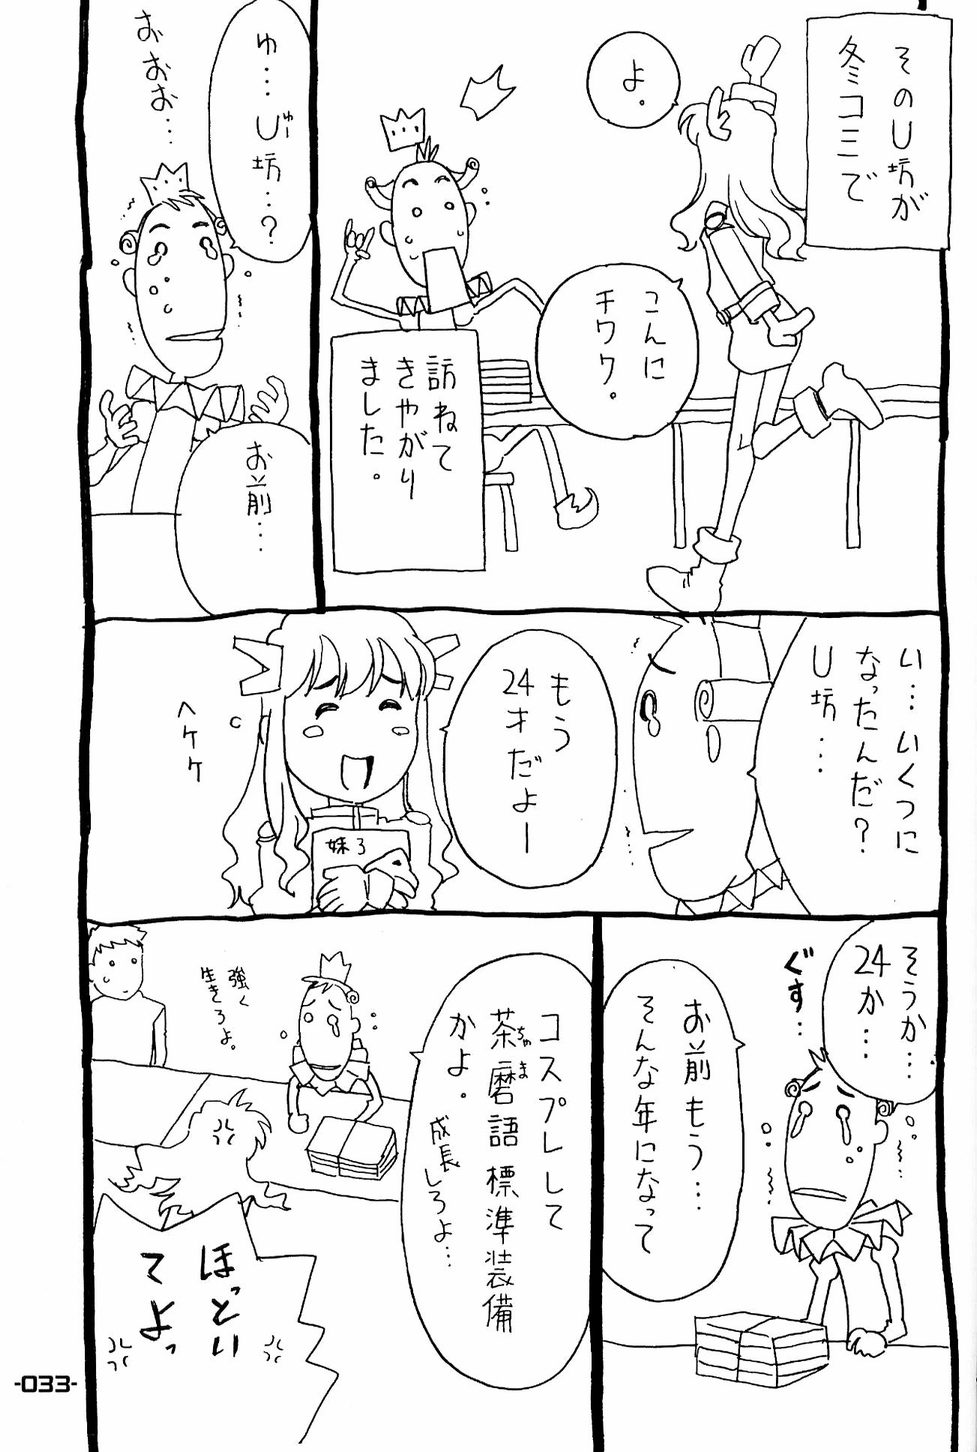 そのU坊が
冬コミで
よ。
こんに
チワワ。
訪ねて
きやがり
ました。
ゆ…U坊…?
ゅー
おおお…
お前…
い…いくつに
なったんだ?
U坊…
もう
24才だよー
ヘケケ
妹3
そうか…
24か…
ぐす…
お前もう…
そんな年になって
コスプレして
茶磨語標準装備
ちゃま
かよ。
成長しろよ…
強く
生きろよ。
ほっとい
てよっ
-033-